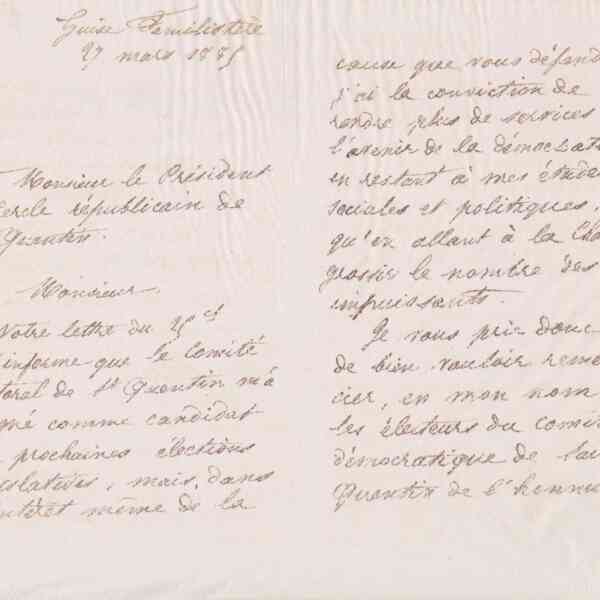 Guise Familistère
27 mars 1885
Monsieur le Président
Cercle républicain de
Quentin.
Monsieur,
Votre lettre du 25 ct
informe que le Comité
toral de St Quentin m'a
mé comme candidat
prochaines élections
islatives, mais, dans
intérêt même de la
cause que vous défend
j'ai la conviction de
rendre plus de services
l'avenir de la démocrat
en restant à mes étude
sociales et politiques,
qu'en allant à la Cha
grossir le nombre des
impuissants.
Je vous prie donc
de bien vouloir remer
cier, en mon nom
les électeurs du Comi
démocratique de Sai
Quentin de l'honne